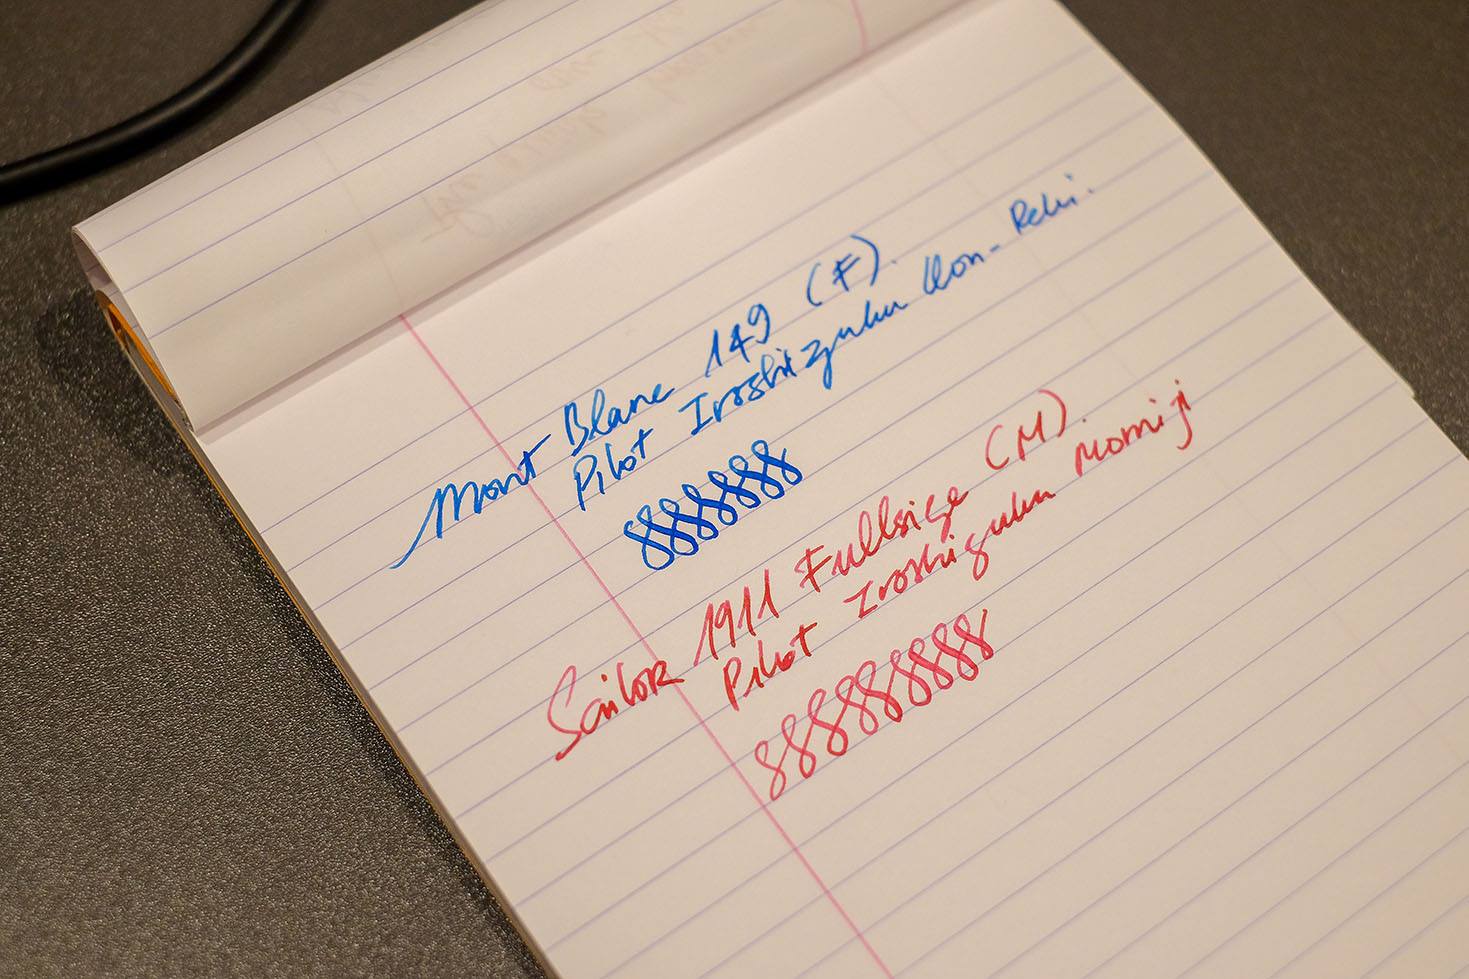 Mont Blanc 149 (F).
Pilot Iroshizuku Kon-Peki.
8888888
Sailor 1911 Fullsize (M).
Pilot Iroshizuku Momiji
888888888